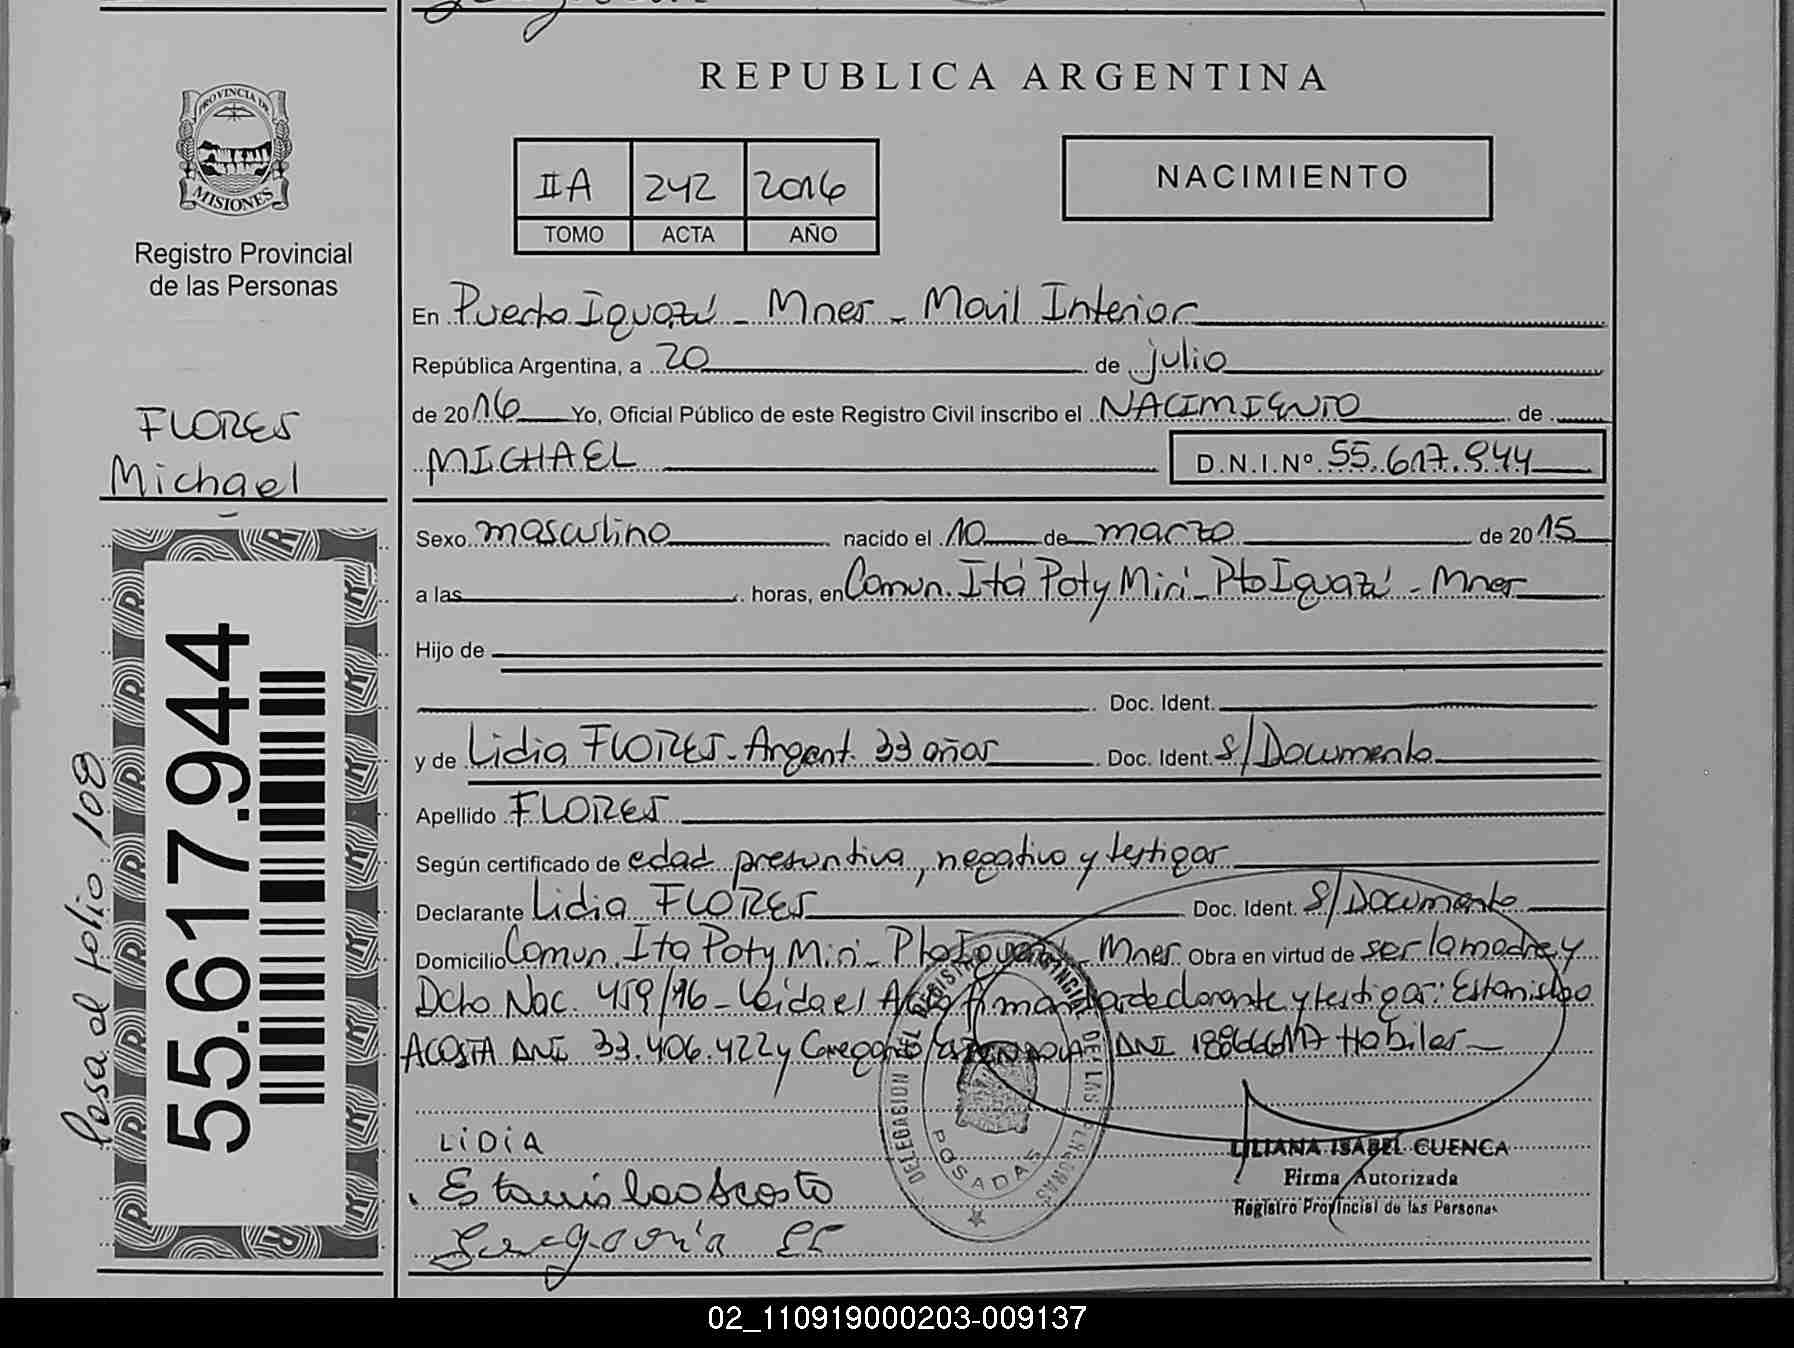 REPUBLICA ARGENTINA
PROVINCIA DE
MISIONES
Registro Provincial
de las Personas
IIA 242 2016
TOMO ACTA AÑO
NACIMIENTO
En Puerto Iguazú - Mnes - Movil Interior
República Argentina, a 20 de julio
de 2016 Yo, Oficial Público de este Registro Civil inscribo el NACIMIENTO de
MICHAEL D.N.I.Nº 55.617.944
FLORES
Michael
Sexo masculino nacido el 10 de marzo de 2015
a las horas, en Comun. Itá Poty Miri - Pto Iguazú - Mnes
Hijo de
Doc. Ident.
y de Lidia FLORES - Argent. 33 años Doc. Ident. S/Documento
Apellido FLORES
Según certificado de edad presuntiva, negativo y testigos
Declarante Lidia FLORES Doc. Ident. S/Documento
Domicilio Comun. Ita Poty Miri - Pto Iguazú - Mnes Obra en virtud de ser la madre y
Dcto Nac. 459/96 - Leida el Acta firman declarante y testigos: Estanislao
ACOSTA DNI 33.406.422 y Gregorio DNI Habiles
LiDiA
Estanislao Acosta
DELEGACION DEL REGISTRO PROVINCIAL DE LAS PERSONAS
POSADAS
LILIANA ISABEL CUENCA
Firma Autorizada
Registro Provincial de las Personas
55.617.944
Pasa al folio 108
02_110919000203-009137